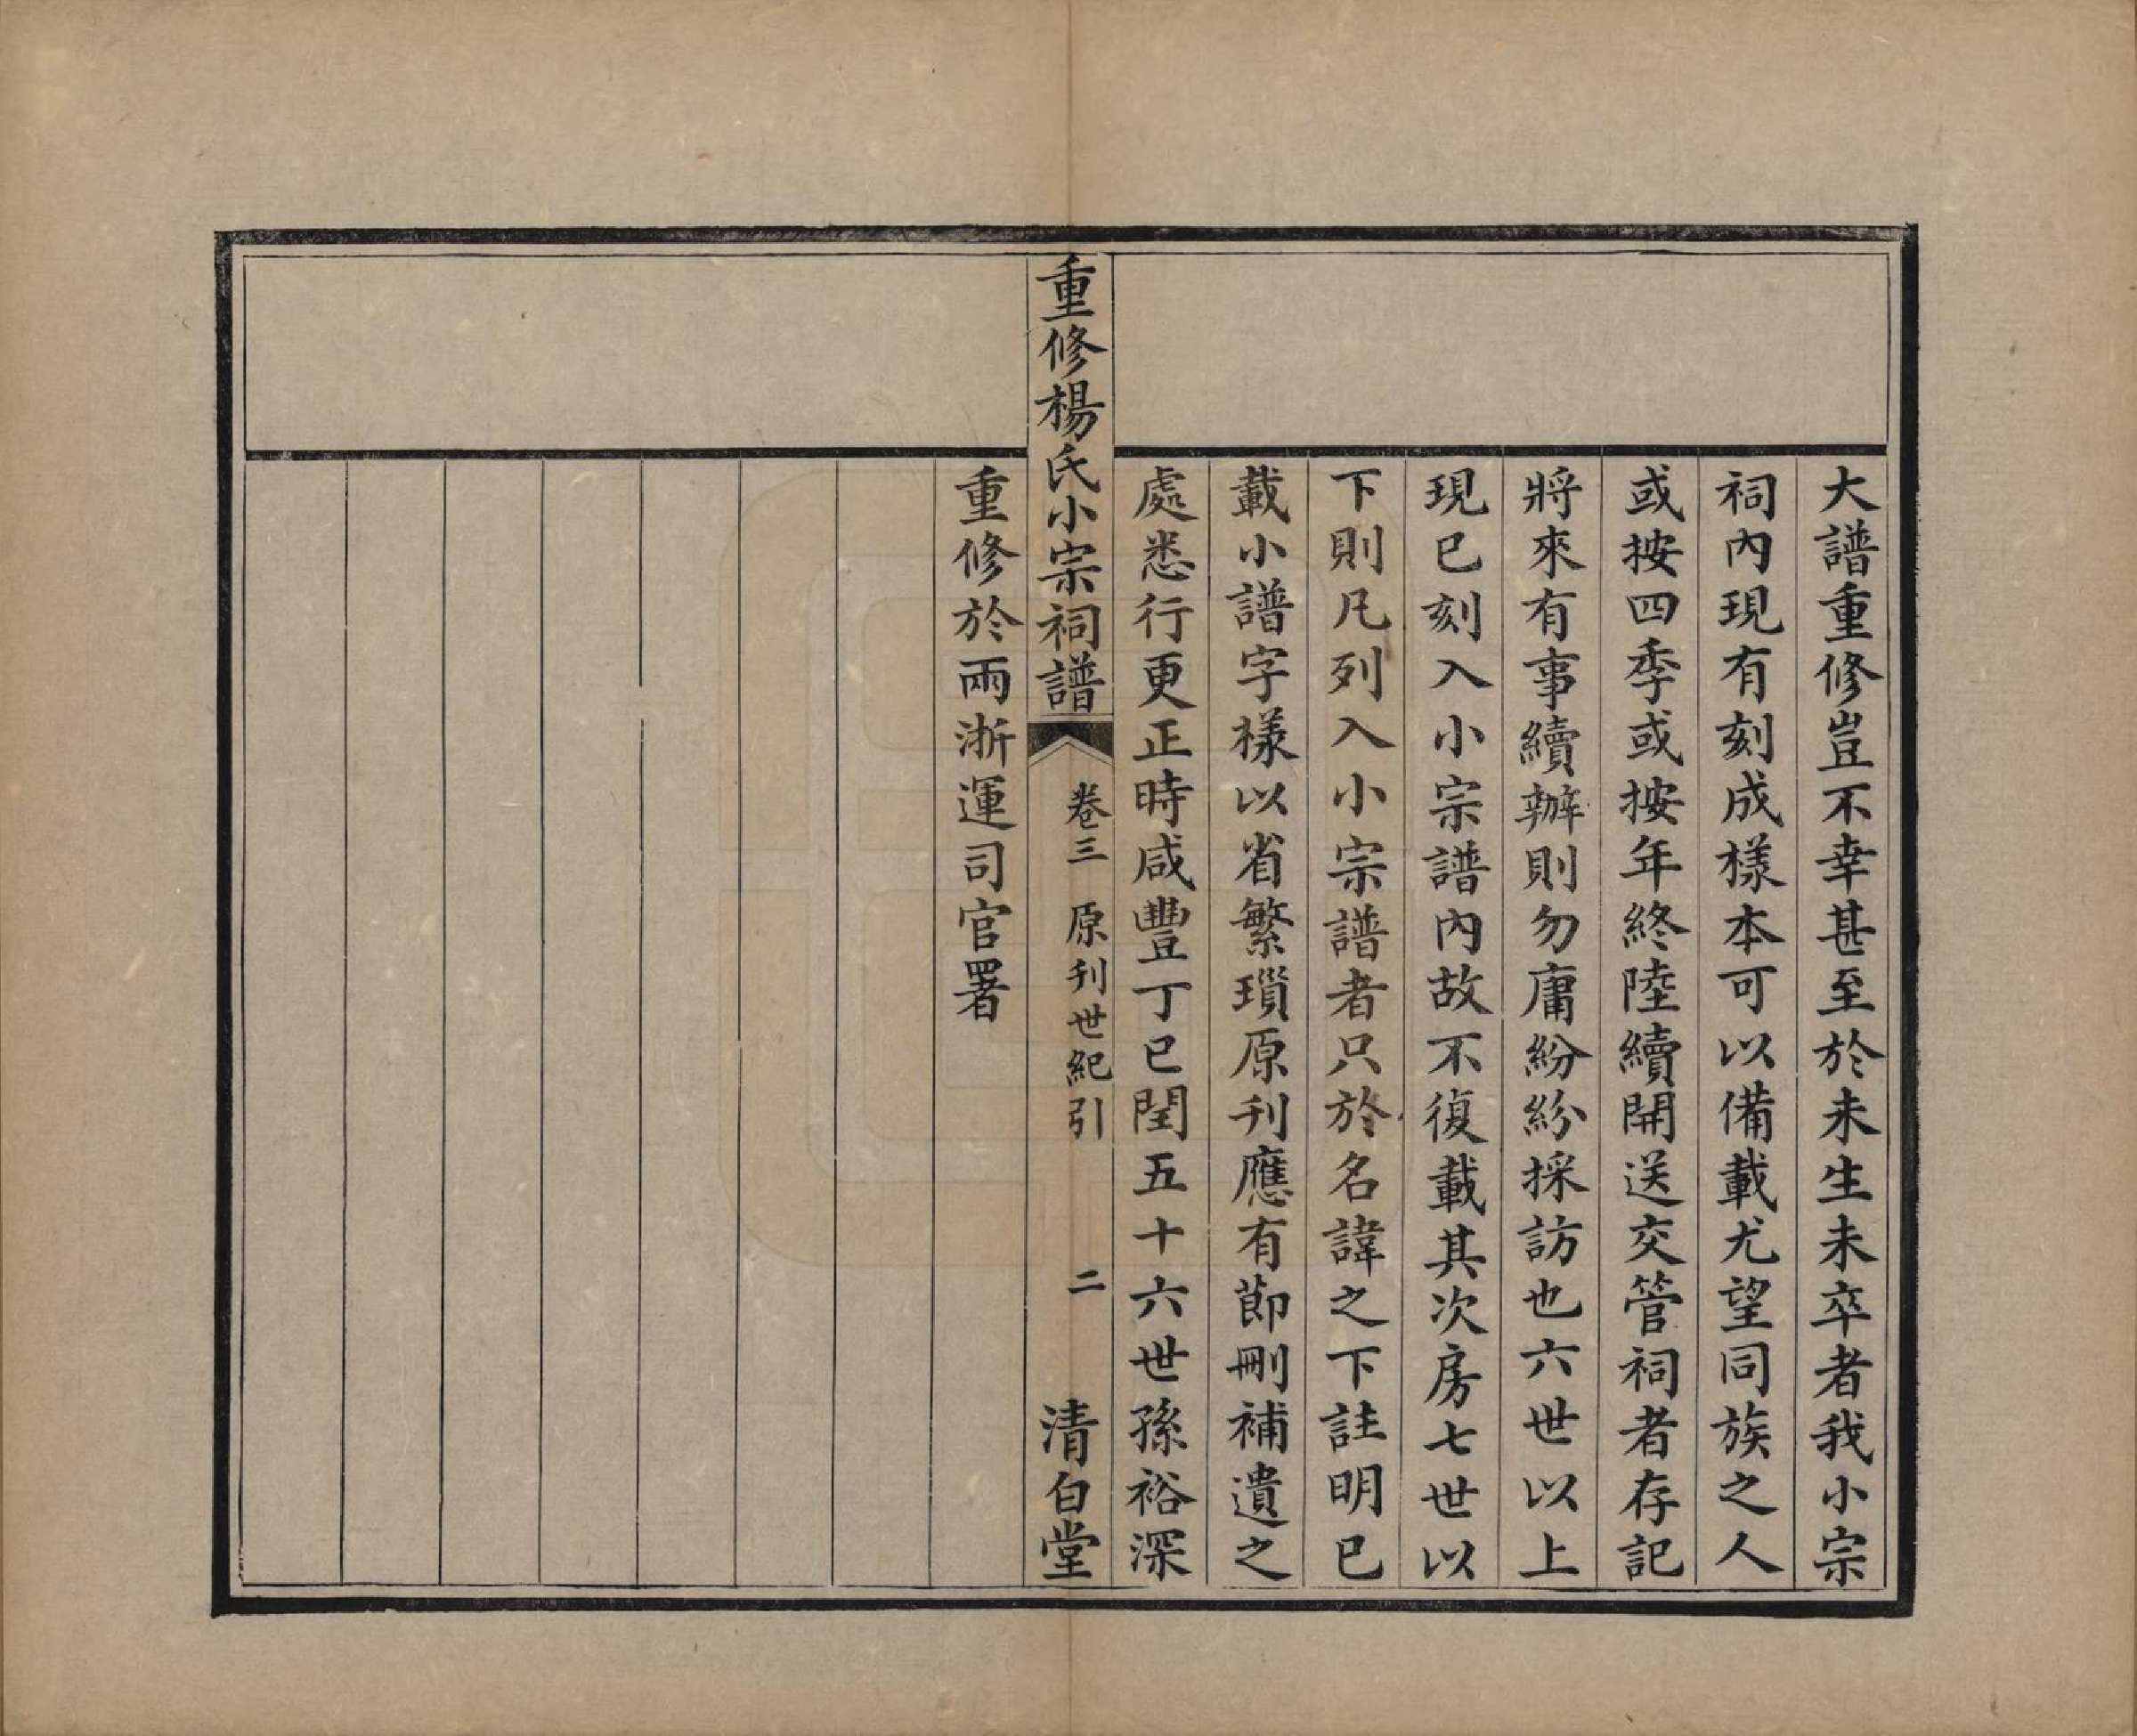 大譜重修豈不幸甚至於未生未卒者我小宗
祠內現有刻成樣本可以備載尤望同族之人
或按四季或按年終陸續開送交管祠者存記
將來有事續辦則勿庸紛紛採訪也六世以上
現已刻入小宗譜內故不復載其次房七世以
下則凡列入小宗譜者只於名諱之下註明已
載小譜字樣以省繁瑣原刊應有節刪補遺之
處悉行更正時咸豐丁巳閏五十六世孫裕深
重修楊氏小宗祠譜 卷三 原刊世紀引 二 清白堂
重修於兩浙運司官署